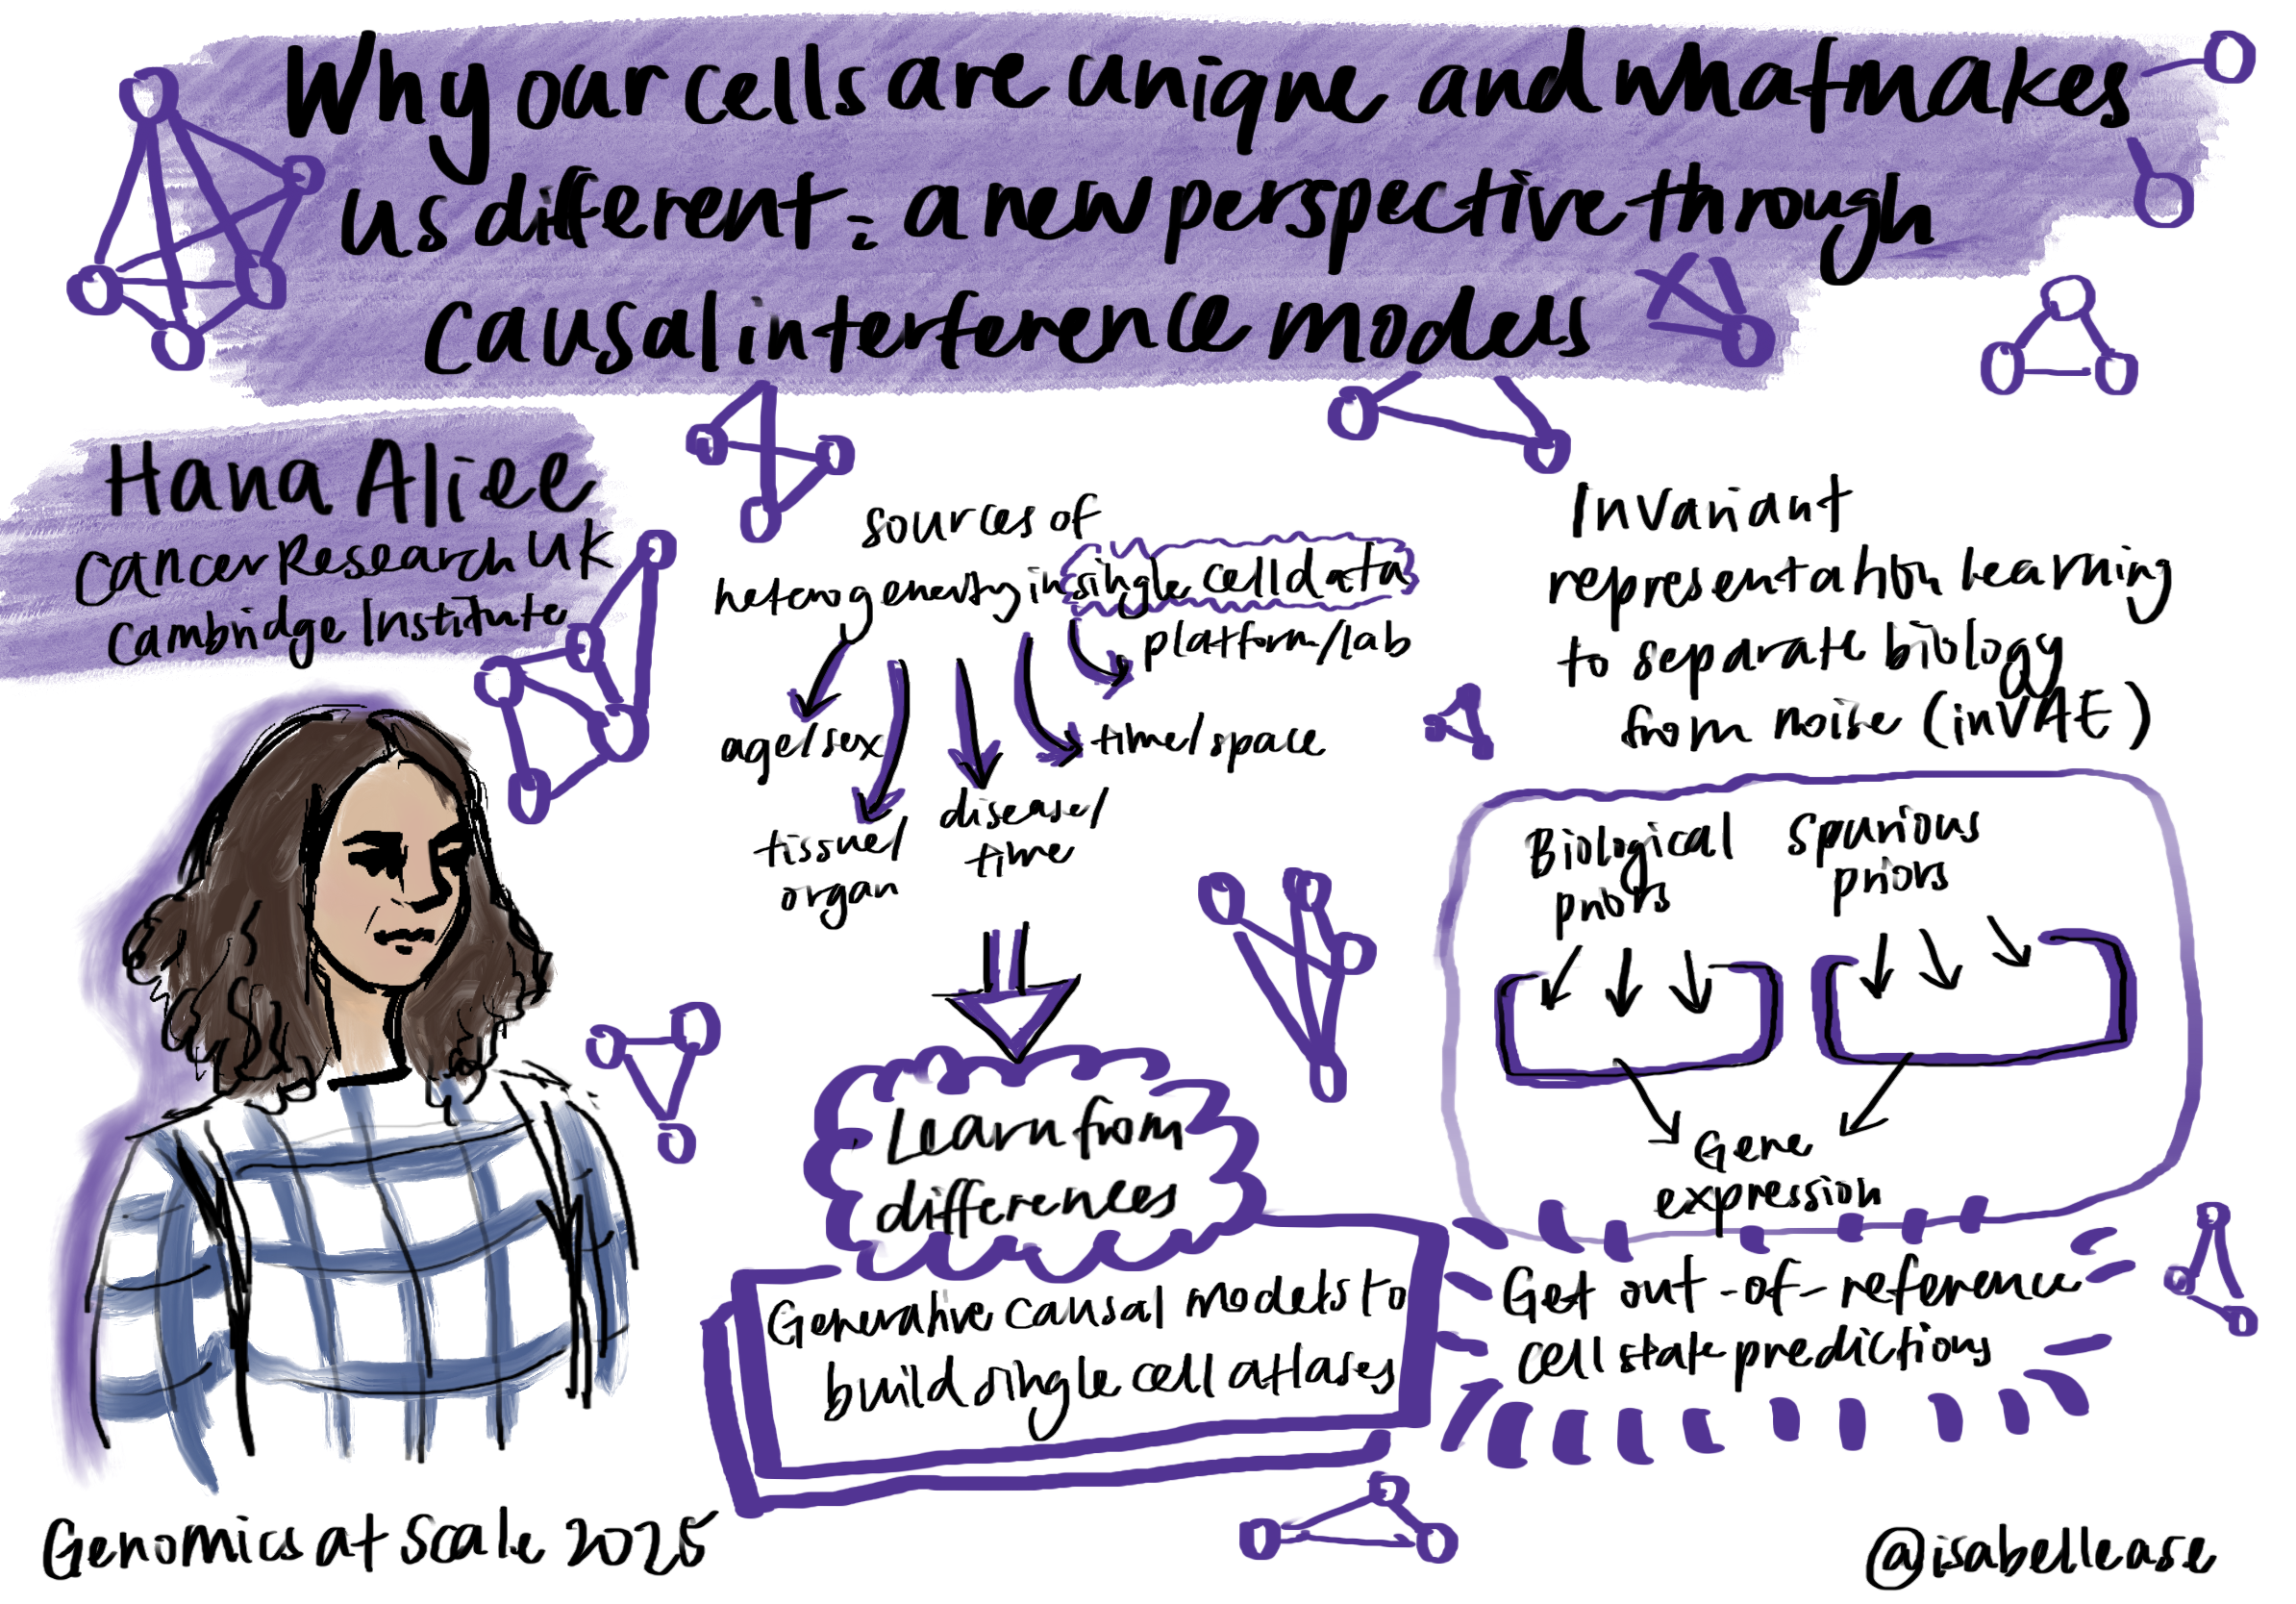 Why our cells are unique and what makes
us different: a new perspective through
causal interference models
Hana Aliee
Cancer Research UK
Cambridge Institute
sources of
heterogeneity in single cell data
platform/lab
age/sex
time/space
tissue/
organ
disease/
time
Learn from
differences
Generative causal models to
build single cell atlases
Invariant
representation learning
to separate biology
from noise (inVAE)
Biological
priors
Spurious
priors
Gene
expression
Get out-of-reference
cell state predictions
Genomics at Scale 2025
@isabellease